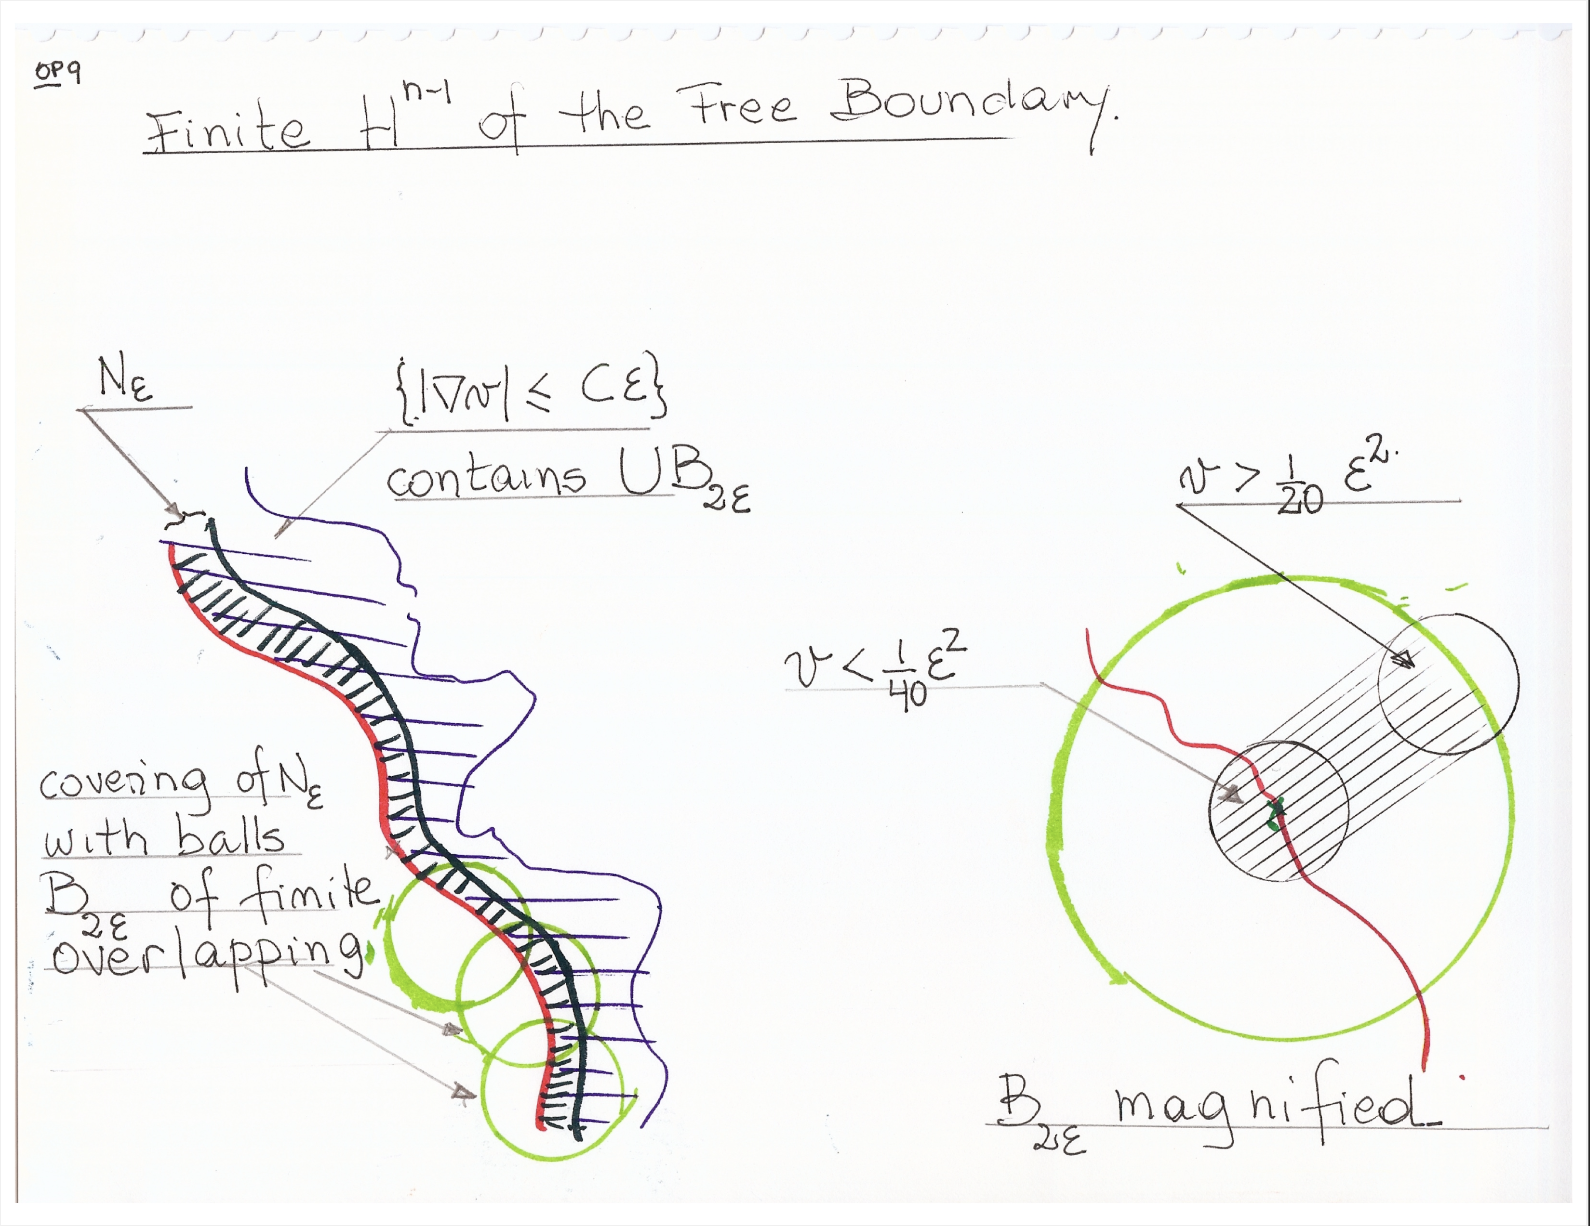 OP9
Finite H^{n-1} of the Free Boundary.
N_ε
{|∇v| ≤ Cε}
contains UB_{2ε}
v > 1/20 ε^2.
v < 1/40 ε^2
covering of N_ε
with balls
B_{2ε} of finite
overlapping.
B_{2ε} magnified